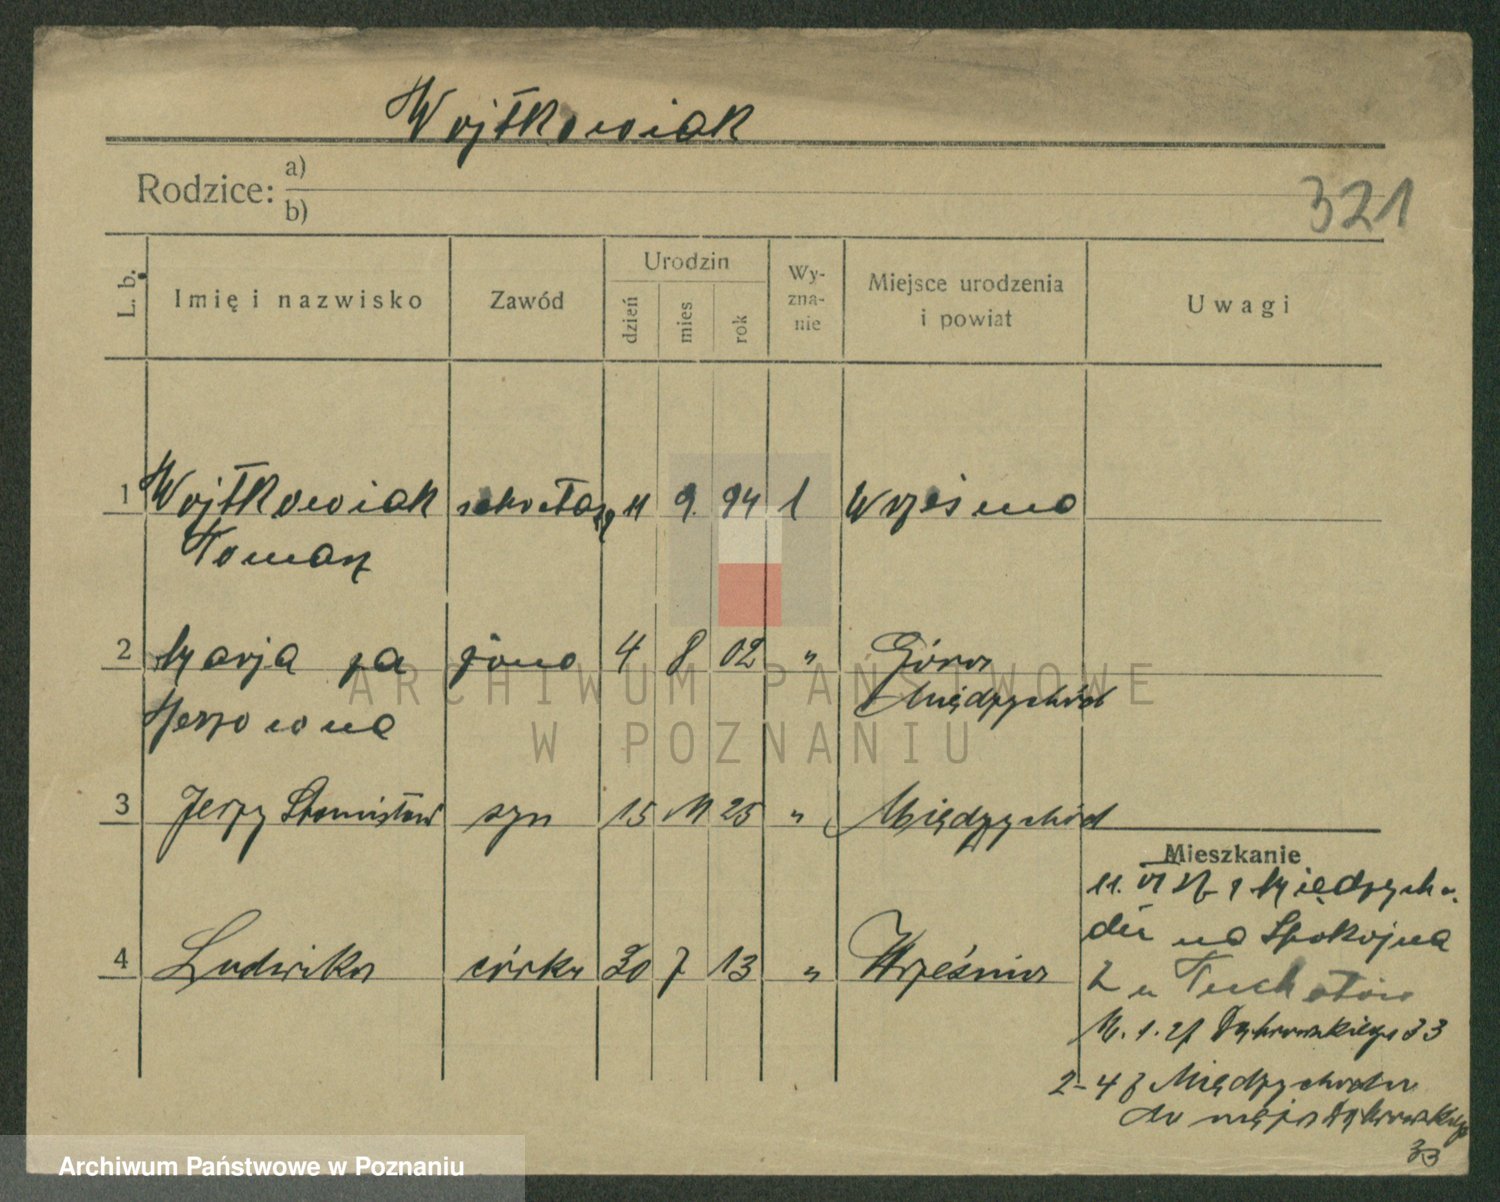 Wojtkowiak
Rodzice: a)
b)
321
L. b. Imię i nazwisko Zawód Urodzin dzień mies rok Wy-zna-nie Miejsce urodzenia i powiat Uwagi
1 Wojtkowiak sekretarz 11 9. 94 1 Wrześno
Tomasz
2 Marja za żona 4 8 02 " Góra
Międzychód
3 Jerzy Stanisław syn 15 11 25 " Międzychód
4 Ludwika córka 30 7 13 " Września
Mieszkanie
11. VI z Międzycho-
du na Spokojna
2 u
1. 27 Dąbrowskiego 33
2-4 z Międzychodu
do męża Dąbrowskiego
33
ARCHIWUM PAŃSTWOWE
W POZNANIU
Archiwum Państwowe w Poznaniu